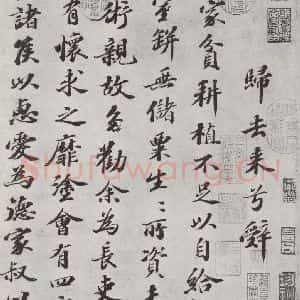 歸去来兮辭
家貧耕植不足以自給
室缾無儲粟生〻所資未
術親故多勸余為長吏
有懷求之靡塗會有四
諸侯以惠愛為德家叔以
Shufawang.CN